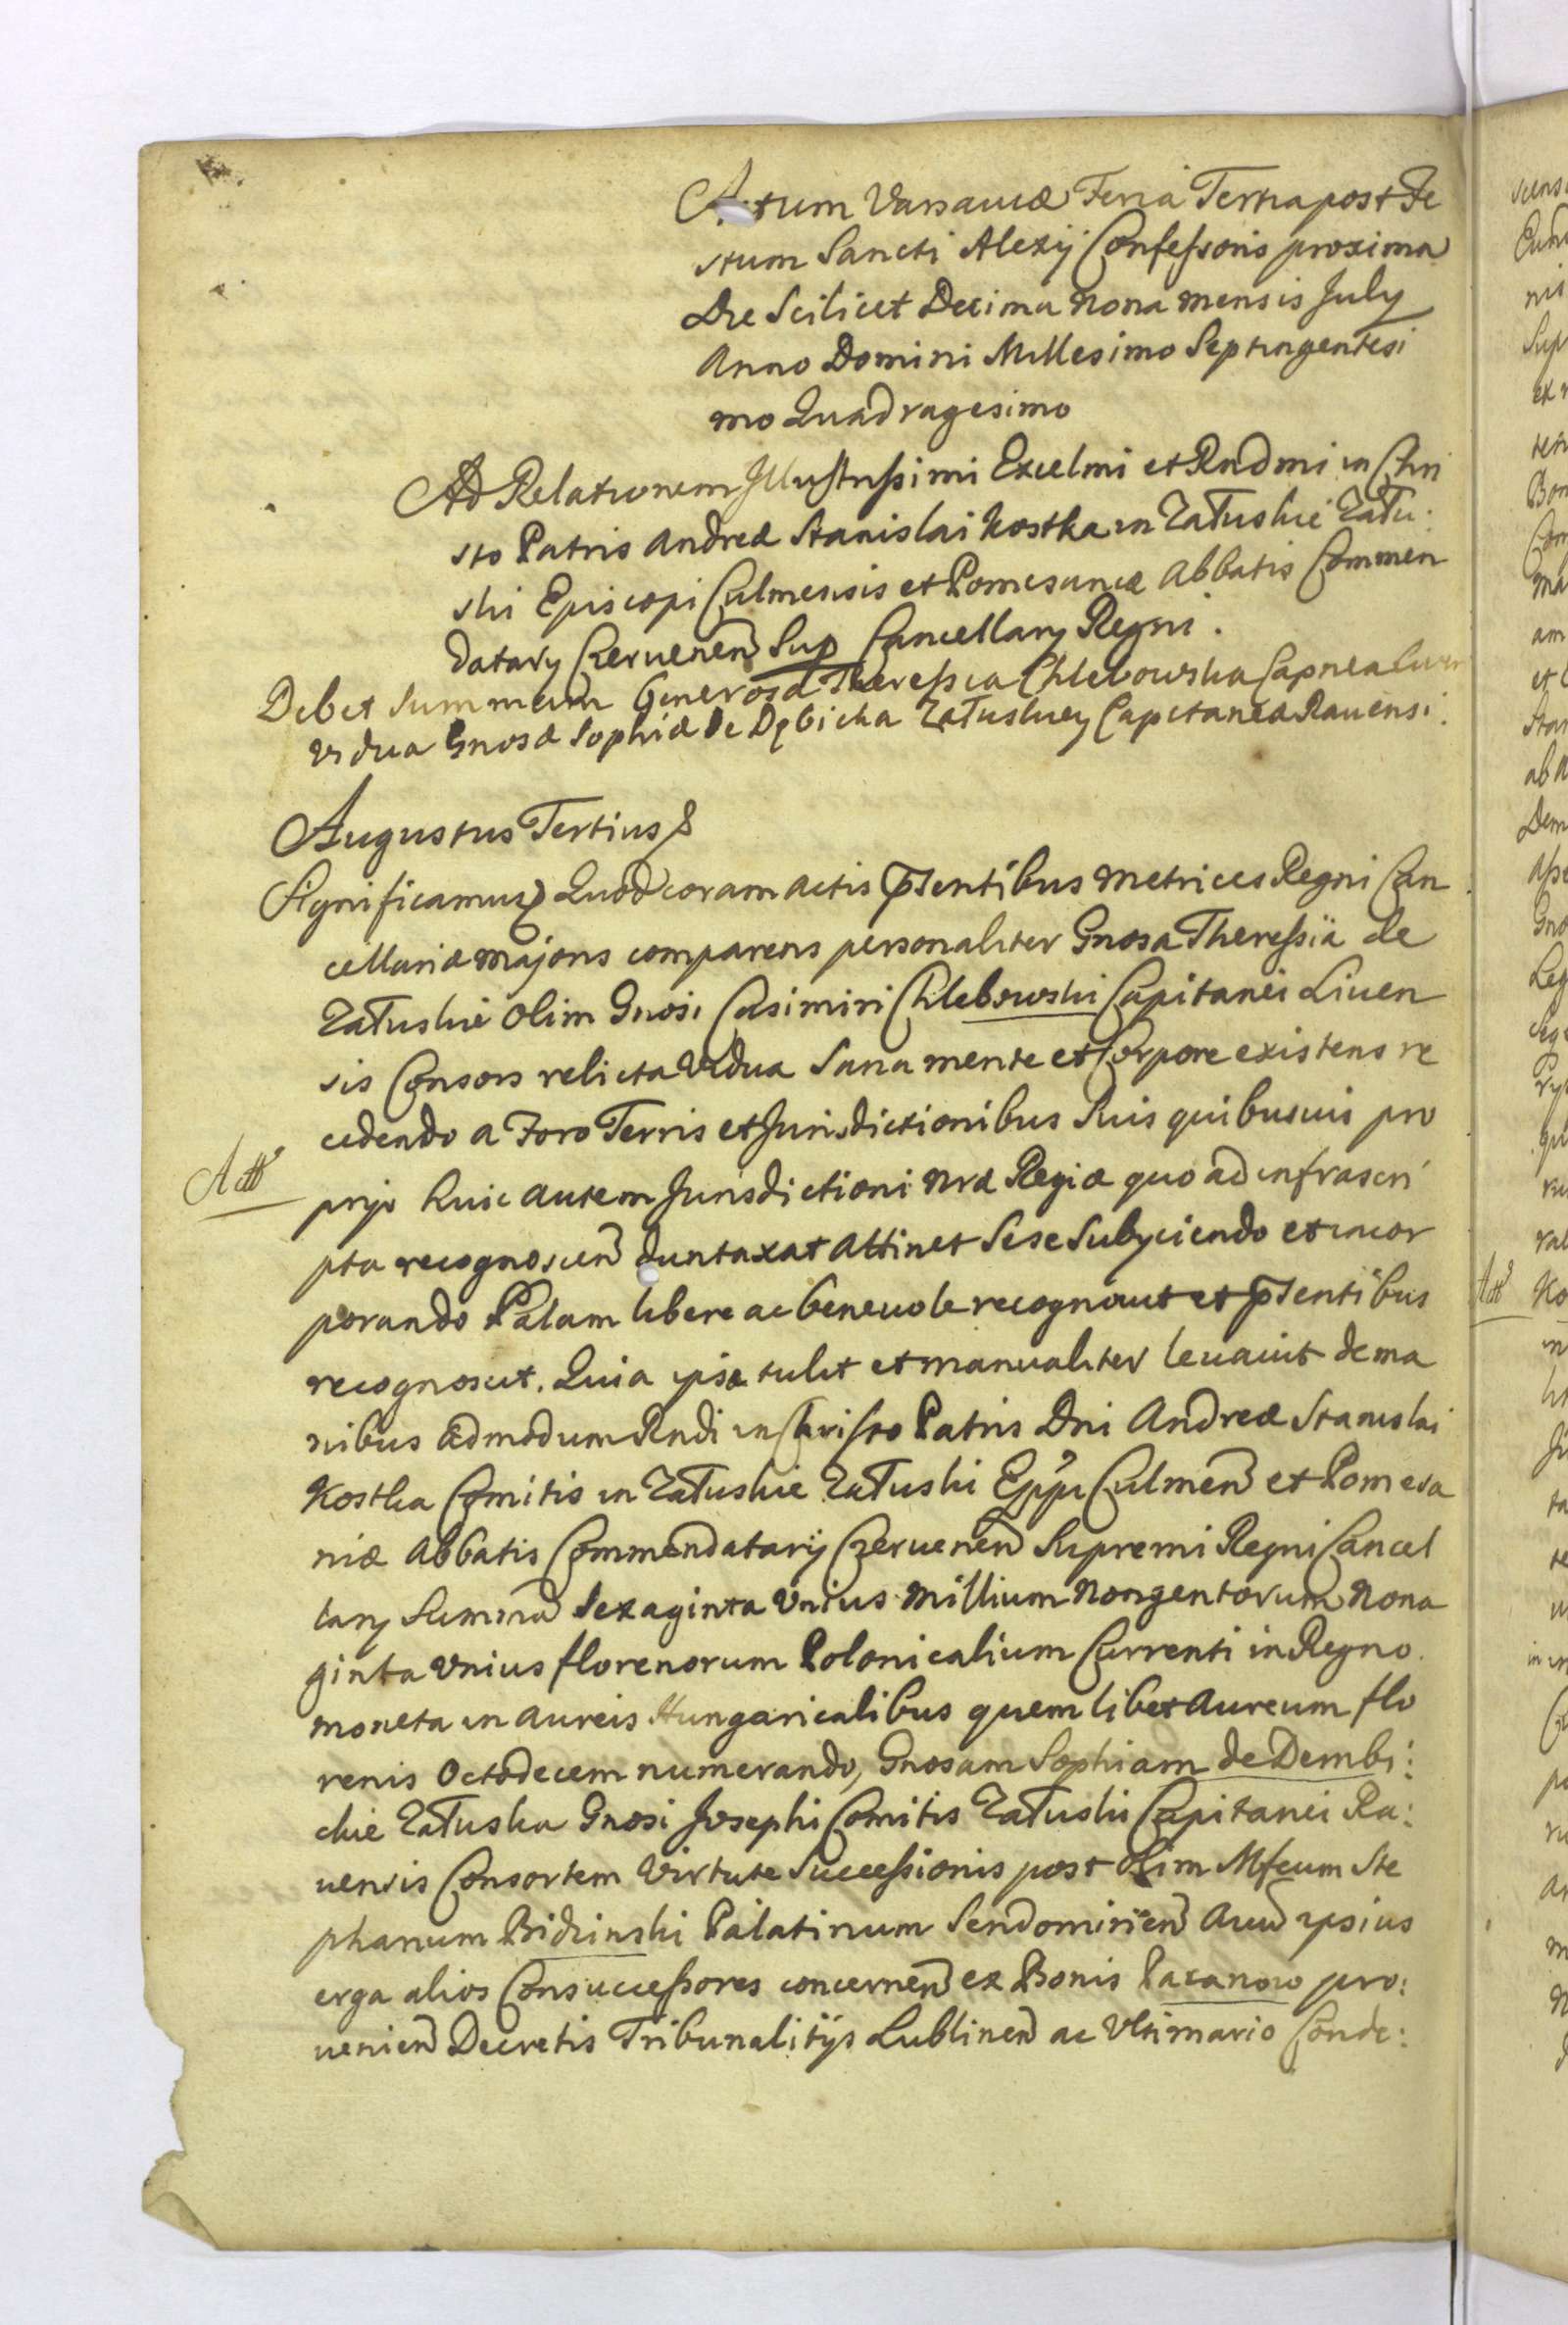 Actum Varsaviæ Feria Tertia post Fe
stum Sancti Alexij Confessoris proxima
Die Scilicet Decima Nona mensis July
Anno Domini Millesimo Septingentesi
mo Quadragesimo
Ad Relationem Illustrissimi Excelmi et Rndmi in Chri
sto Patris Andreæ Stanislai Kostka in Załuskie Zału:
ski Episcopi Culmensis et Pomesaniæ Abbatis Commen
datary Czervenen Sup Cancellary Regni.
Debet Summam Generosæ Theressia Chlebowska Capnea Liven
vidua Gnosæ Sophiæ de Dębicka Załuskiey Capitanea Ravensi.
Augustus Tertius &
Significamus Quod coram actis pntentibus Metrices Regni Can
cellariæ Majoris comparens personaliter Gnosa Theressia de
Załuskie olim Gnosi Casimiri Chlebowski Capitanei Liven
sis Consors relicta Vidua Sana mente et Corpore existens re
cedendo a Foro Terris et Jurisdictionibus Suis quibusuis pro
prijs huic autem Jurisdictioni Nræ Regiæ quo ad infrascri
Att
pta recognoscen duntaxat Attinet Sese Subyciendo et incor
porando Palam libere ac benevole recognovit et pntentibus
recognoscit. Quia ipsa tulit et manualiter levavit de ma
nibus admodum Rndi in Christo Patris Dni Andreæ Stanislai
Kostka Comitis in Załuskie Załuski Eppi Culmen et Pomesa
niæ Abbatis Commendatarij Czervenen Supremi Regni Cancel
lary Summa Sexaginta Unius Millium Nongentorum Nona
ginta Unius florenorum Polonicalium Currenti in Regno
moneta in aureis Hungaricalibus quemlibet Aureum flo
renis Octodecem numerando, Gnosam Sophiam de Dembi:
ckie Załuska Gnosi Josephi Comitis Załuski Capitanei Ra:
vensis Consortem Virtute Successionis post Olim Mfcum Ste
phanum Bidzinski Palatinum Sendomirien Avum ipsius
erga alios Consuccessores concernen ex Bonis Pacanow pro:
venien Decretis Tribunalitijs Lublinen ac Ultimario Conde: